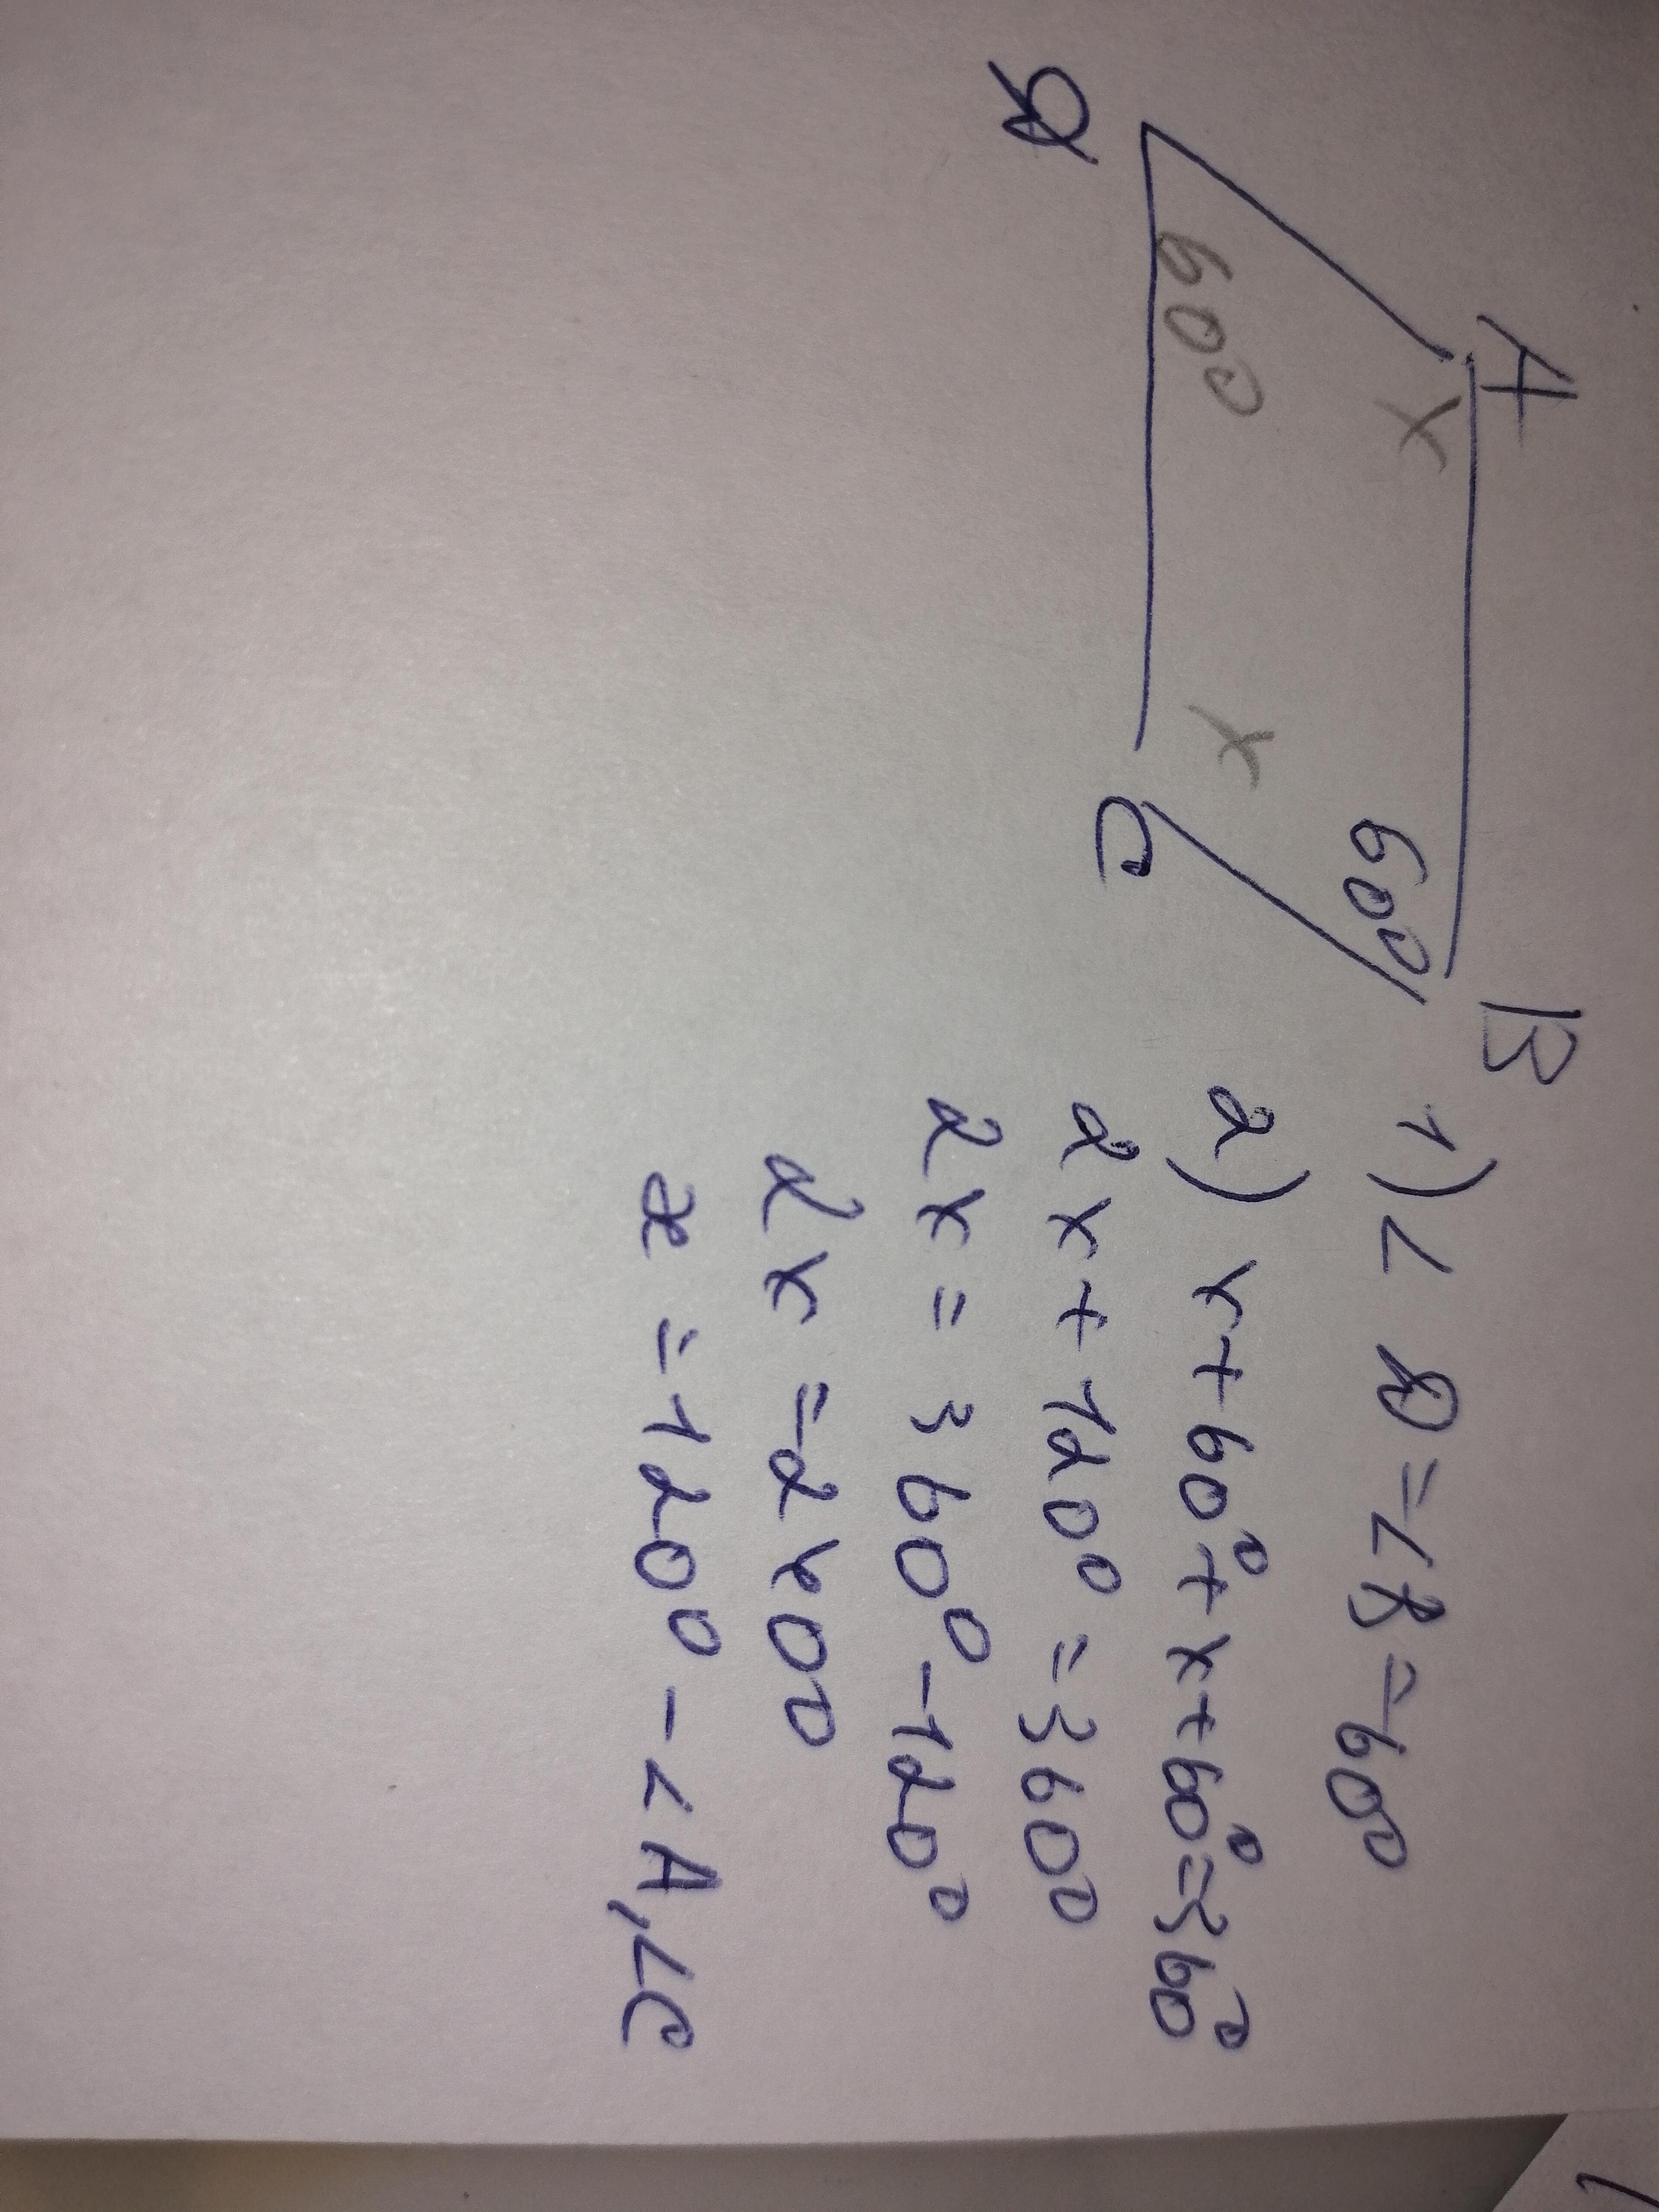 A
B
x
60°
60°
x
D
C
1) ∠D=∠B=60°
2) x+60°+x+60°=360°
2x+120°=360°
2x=360°-120°
2x=240°
x=120°-∠A,∠C